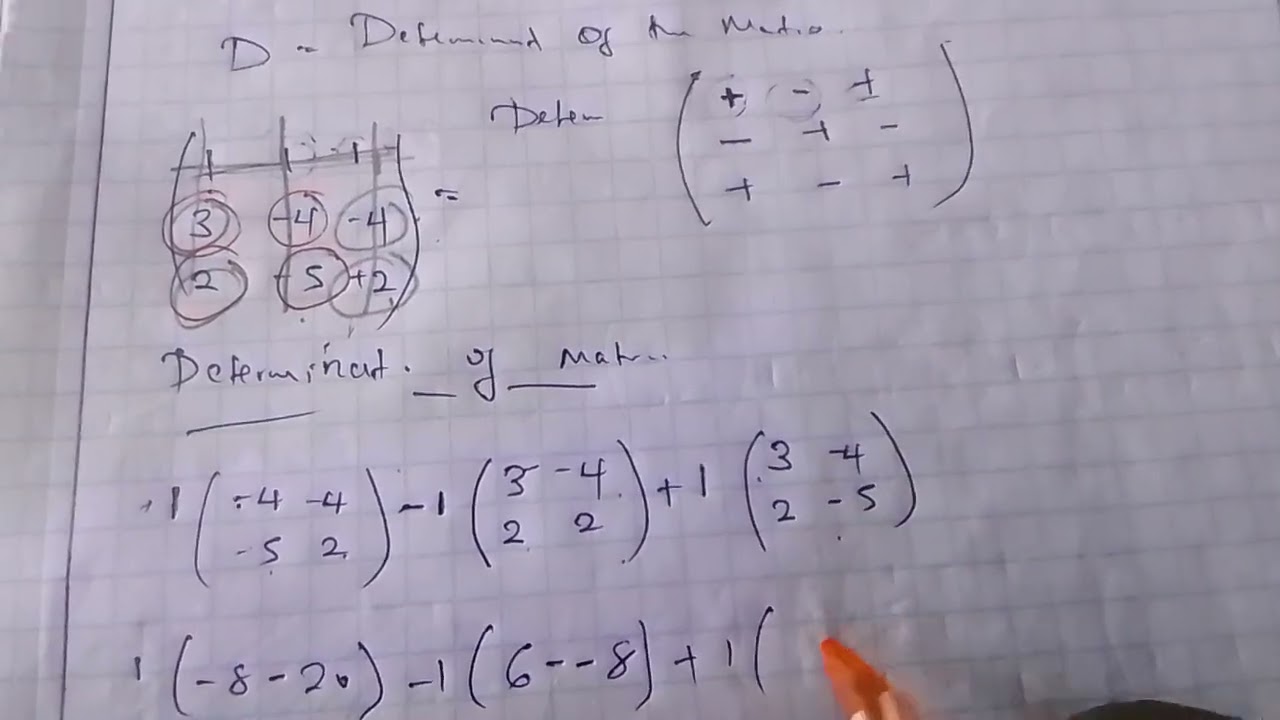 D - Determinant of the Matrix.
Deten
( + - +
- + -
+ - + )
( 1 1 1
3 -4 -4
2 -5 +2 ) =
Determinant. of Matri..
+1 ( -4 -4 ) -1 ( 3 -4 ) +1 ( 3 -4 )
( -5 2 ) ( 2 2 ) ( 2 -5 )
1 ( -8 - 20 ) -1 ( 6 - - 8 ) + 1 (